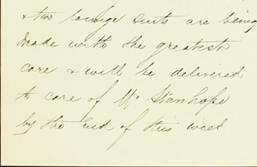 & two lounge suits are being
made with the greatest
care & will be delivered
to care of Mr Stanhope
by the end of this week